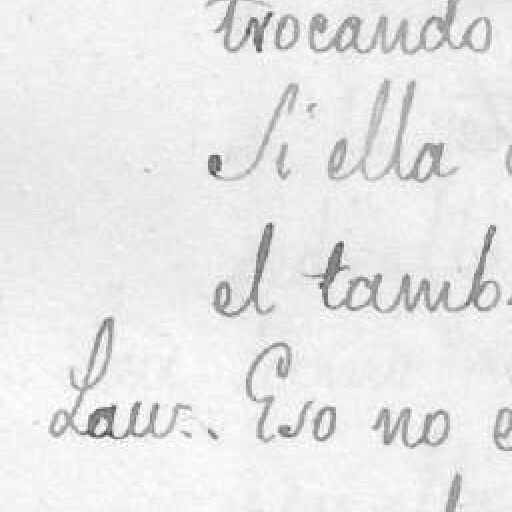 trocando
Si ella
el tamb
Laur. Eso no e